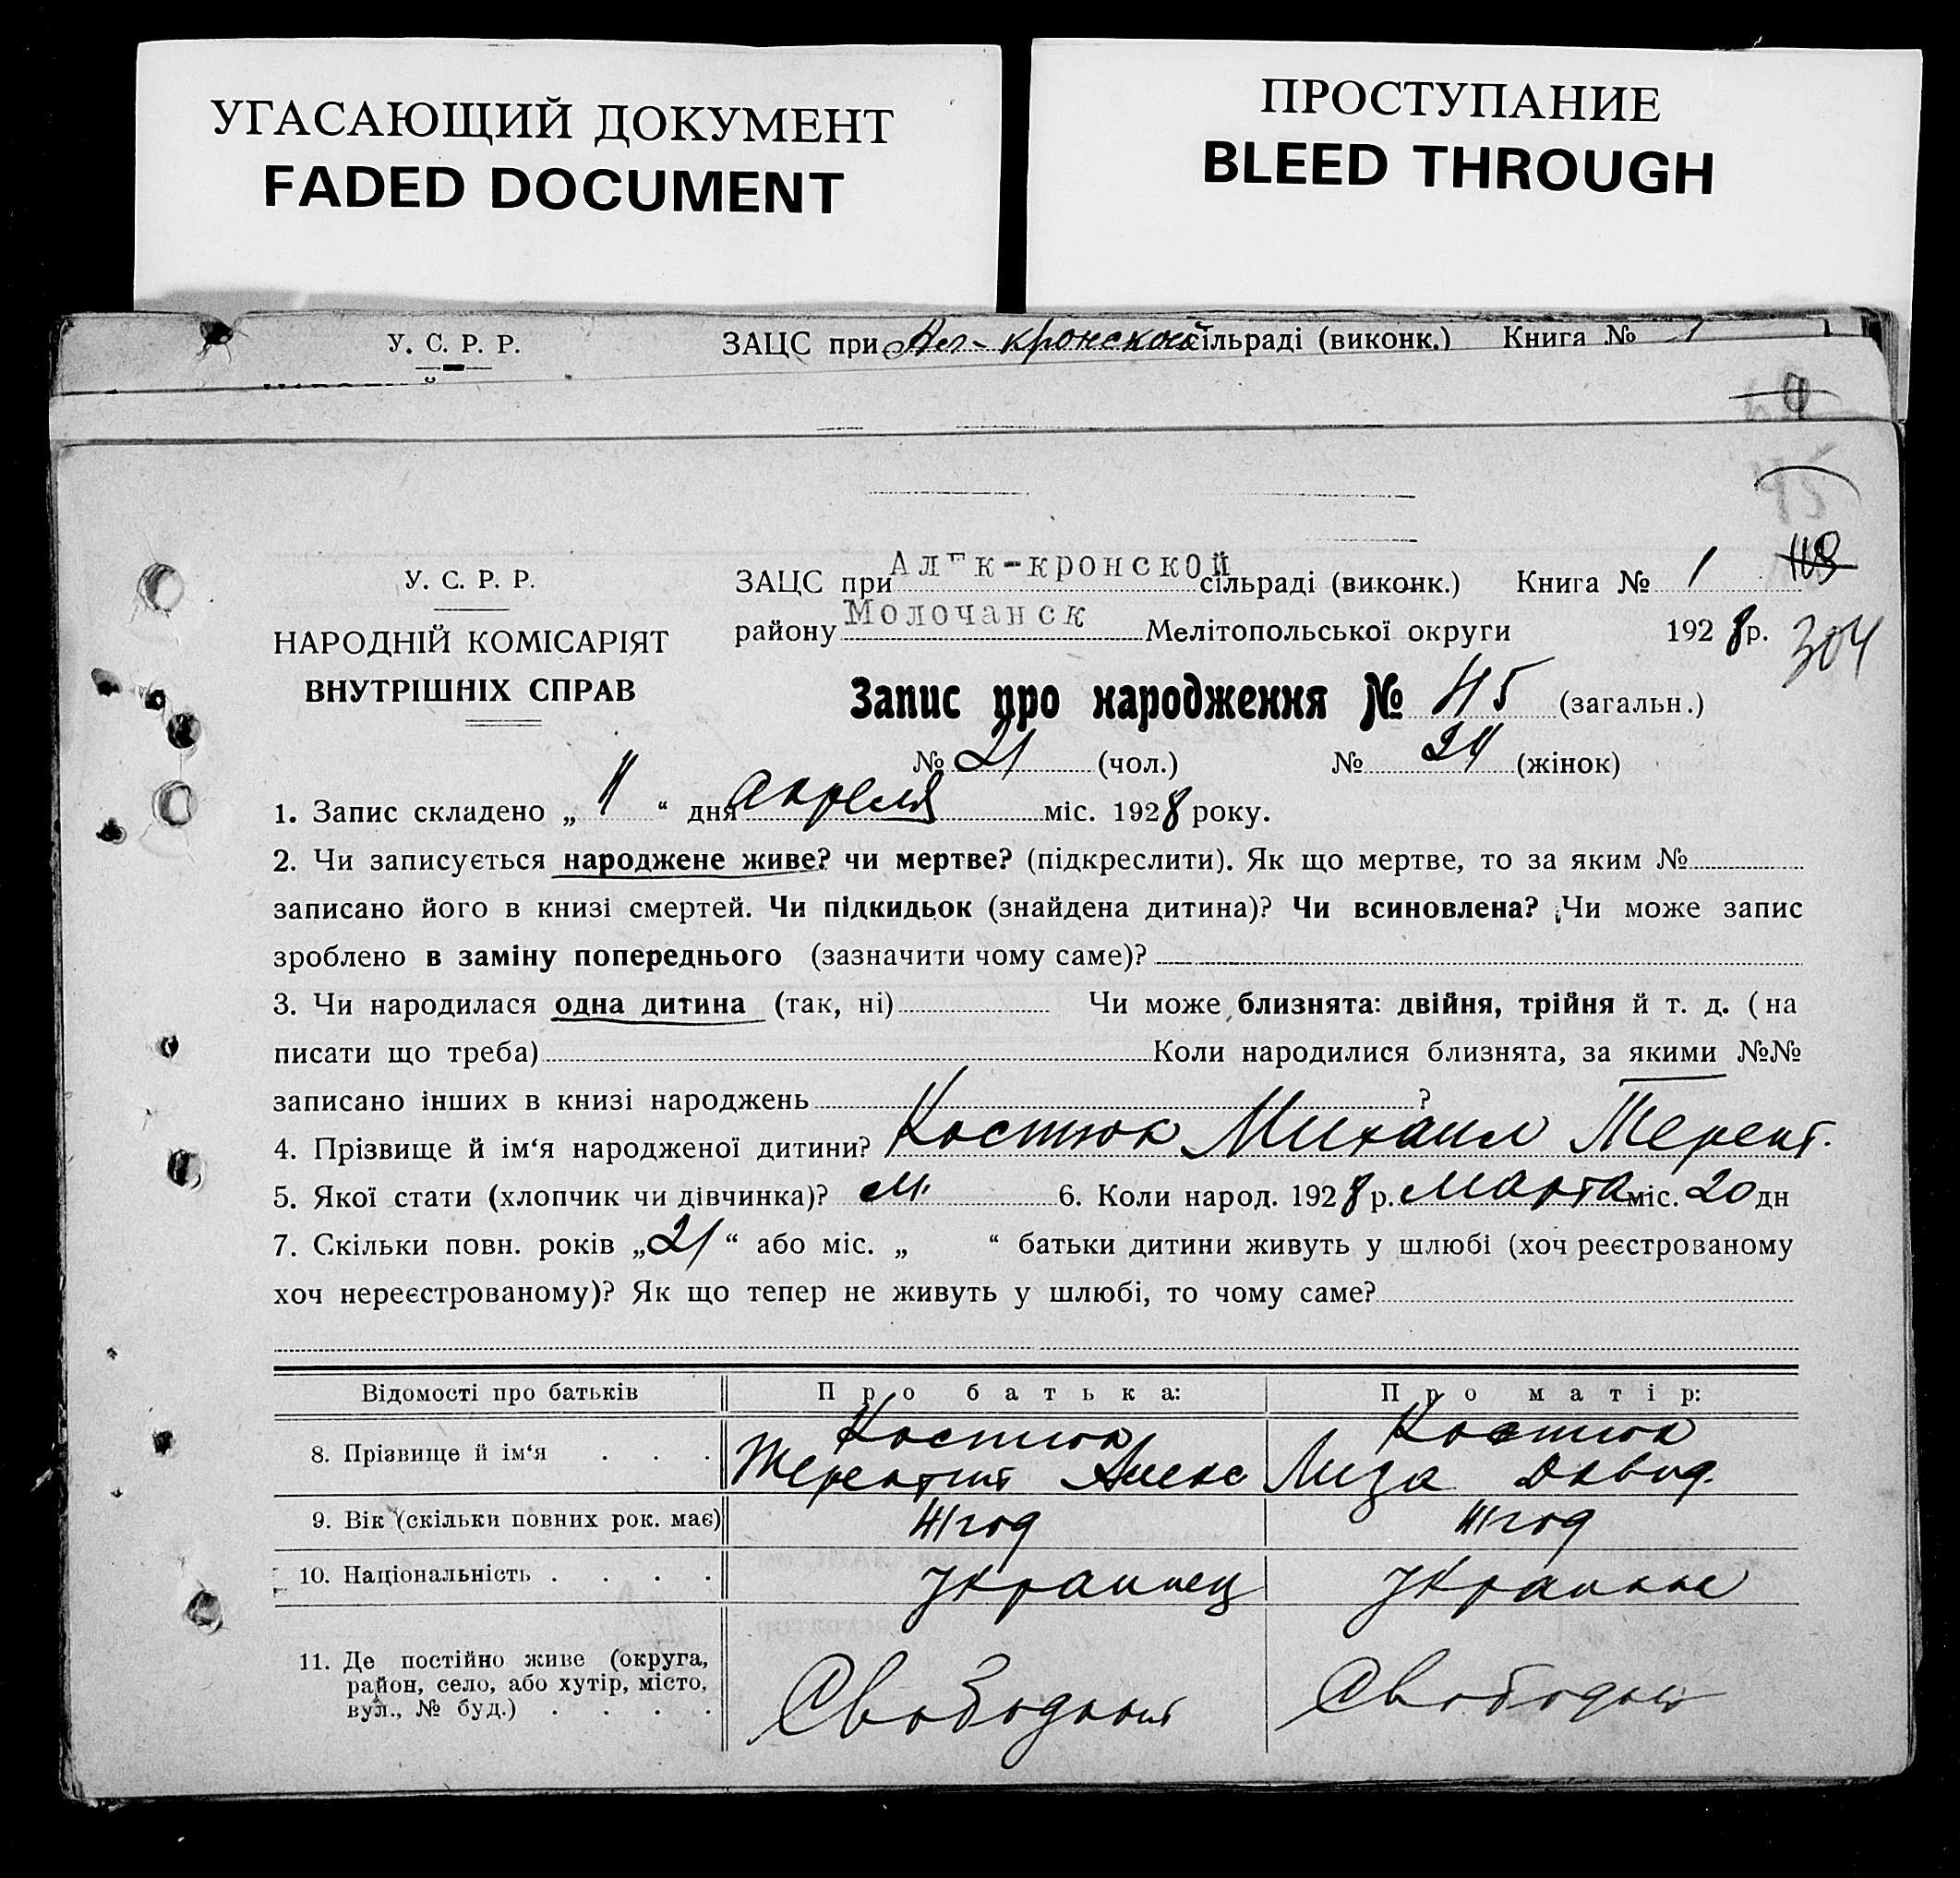 УГАСАЮЩИЙ ДОКУМЕНТ
FADED DOCUMENT
ПРОСТУПАНИЕ
BLEED THROUGH
У. С. Р. Р.
ЗАЦС при Ал-кронской сільраді (виконк.) Книга № 1
У. С. Р. Р.
НАРОДНІЙ КОМІСАРІЯТ
ВНУТРІШНІХ СПРАВ
ЗАЦС при Ал к-кронской сільраді (виконк.) Книга № 1
району Молочанск Мелітопольської округи 1928 р.
304
Запис про народження № 45 (загальн.)
№ 21 (чол.) № 24 (жінок)
1. Запис складено „ 4 “ дня апреля міс. 1928 року.
2. Чи записується народжене живе? чи мертве? (підкреслити). Як що мертве, то за яким №
записано його в книзі смертей. Чи підкидьок (знайдена дитина)? Чи всиновлена? Чи може запис
зроблено в заміну попереднього (зазначити чому саме)?
3. Чи народилася одна дитина (так, ні) Чи може близнята: двійня, трійня й т. д. (на
писати що треба) Коли народилися близнята, за якими №№
записано інших в книзі народжень ?
4. Прізвище й ім‘я народженої дитини? Костюк Михаил Терент.
5. Якої стати (хлопчик чи дівчинка)? М. 6. Коли народ. 1928 р. Марта міс. 20 дн
7. Скільки повн. років „21“ або міс. „ “ батьки дитини живуть у шлюбі (хоч реєстрованому
хоч нереєстрованому)? Як що тепер не живуть у шлюбі, то чому саме?
Відомості про батьків
Про батька:
Про матір:
8. Прізвище й ім‘я . . .
Костюк
Терентий Алекс
Костюк
Лиза Давид.
9. Вік (скільки повних рок. має)
41 год
41 год
10. Національність . . . .
Украинец
Украинка
11. Де постійно живе (округа,
район, село, або хутір, місто,
вул., № буд.) . . . .